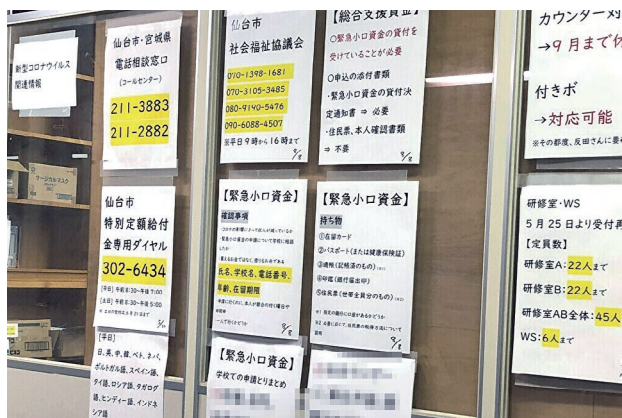 新型コロナウイルス
関連情報
仙台市・宮城県
電話相談窓口
(コールセンター)
211-3883
211-2882
仙台市
特別定額給付
金専用ダイヤル
302-6434
[平日] 午前8:30~午後7:00
[土日] 午前8:30~午後5:00
[平日]
日、英、中、韓、ベト、ネパ、
ポルトガル語、スペイン語、
タイ語、ロシア語、タガログ
語、ヒンディー語、インドネ
シア語
仙台市
社会福祉協議会
070-1398-1681
070-3105-3485
080-9140-5476
090-6088-4507
※平日9時から16時まで
【総合支援資金】
○緊急小口資金の貸付を
受けていることが必要
○申込の添付書類
・緊急小口資金の貸付決
定通知書 ⇒ 必要
・住民票、本人確認書類
⇒ 不要
【緊急小口資金】
確認事項
氏名、学校名、電話番号、
年齢、在留期限
【緊急小口資金】
持ち物
①在留カード
②パスポート(または健康保険証)
③通帳(記帳済のもの)
④印鑑(銀行届出印)
⑤住民票(世帯全員分のもの)
【緊急小口資金】
学校での申請とりまとめ
カウンター対
→9月まで休
付きボ
→対応可能
研修室・WS
5月25日より受付再
【定員数】
研修室A:22人まで
研修室B:22人まで
研修室AB全体:45人
WS:6人まで